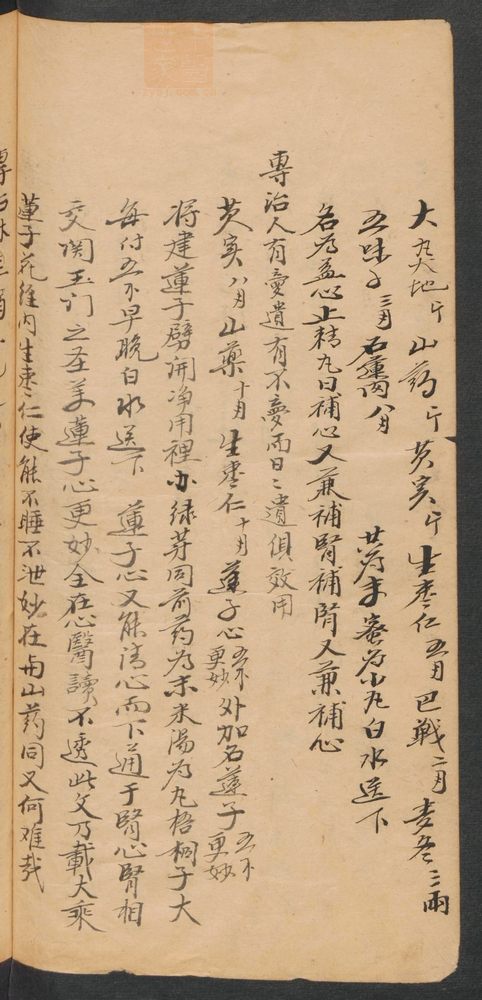 大熟地斤 山药斤 芡实斤 生枣仁五月 巴戟二月 麦冬三兩
五味子三月 石蓮肉八月 共為末蜜為小丸白水送下
名為益心止精丸曰補心又兼補腎補腎又兼補心
專治人有夢遺有不夢而日々遺俱效用
芡实八月 山藥十月 生枣仁十月 蓮子心五个更妙 外加石蓮子五个更妙
将建蓮子劈開淨用裡小绿芽同前药為末米湯為丸梧桐子大
每付五个早晚白水送下 蓮子心又能清心而下通于腎心腎相
交関玉门之圣美蓮子心更妙全在心醫讀不透此文乃載大乘
蓮子花雖内生枣仁使能不睡不泄妙在與山药同又何难哉